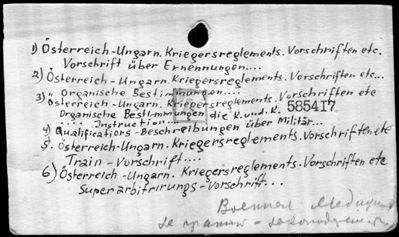 1) Österreich-Ungarn. Kriegersreglements. Vorschriften etc.
Vorschrift über Ernennungen....
2) Österreich-Ungarn. Kriegersreglements. Vorschriften etc...
" Organische Bestimmungen....
3) Österreich-Ungarn. Kriegersreglements. Vorschriften etc
Organische Bestimmungen die K. und. K. 585417
.... Instruction...
4) Qualifications-Beschreibungen über Militär...
5. Österreich-Ungarn. Kriegersreglements. Vorschriften etc
Train-Vorschrift....
6) Österreich-Ungarn. Kriegersreglements. Vorschriften etc
Superarbitrirungs-Vorschrift...